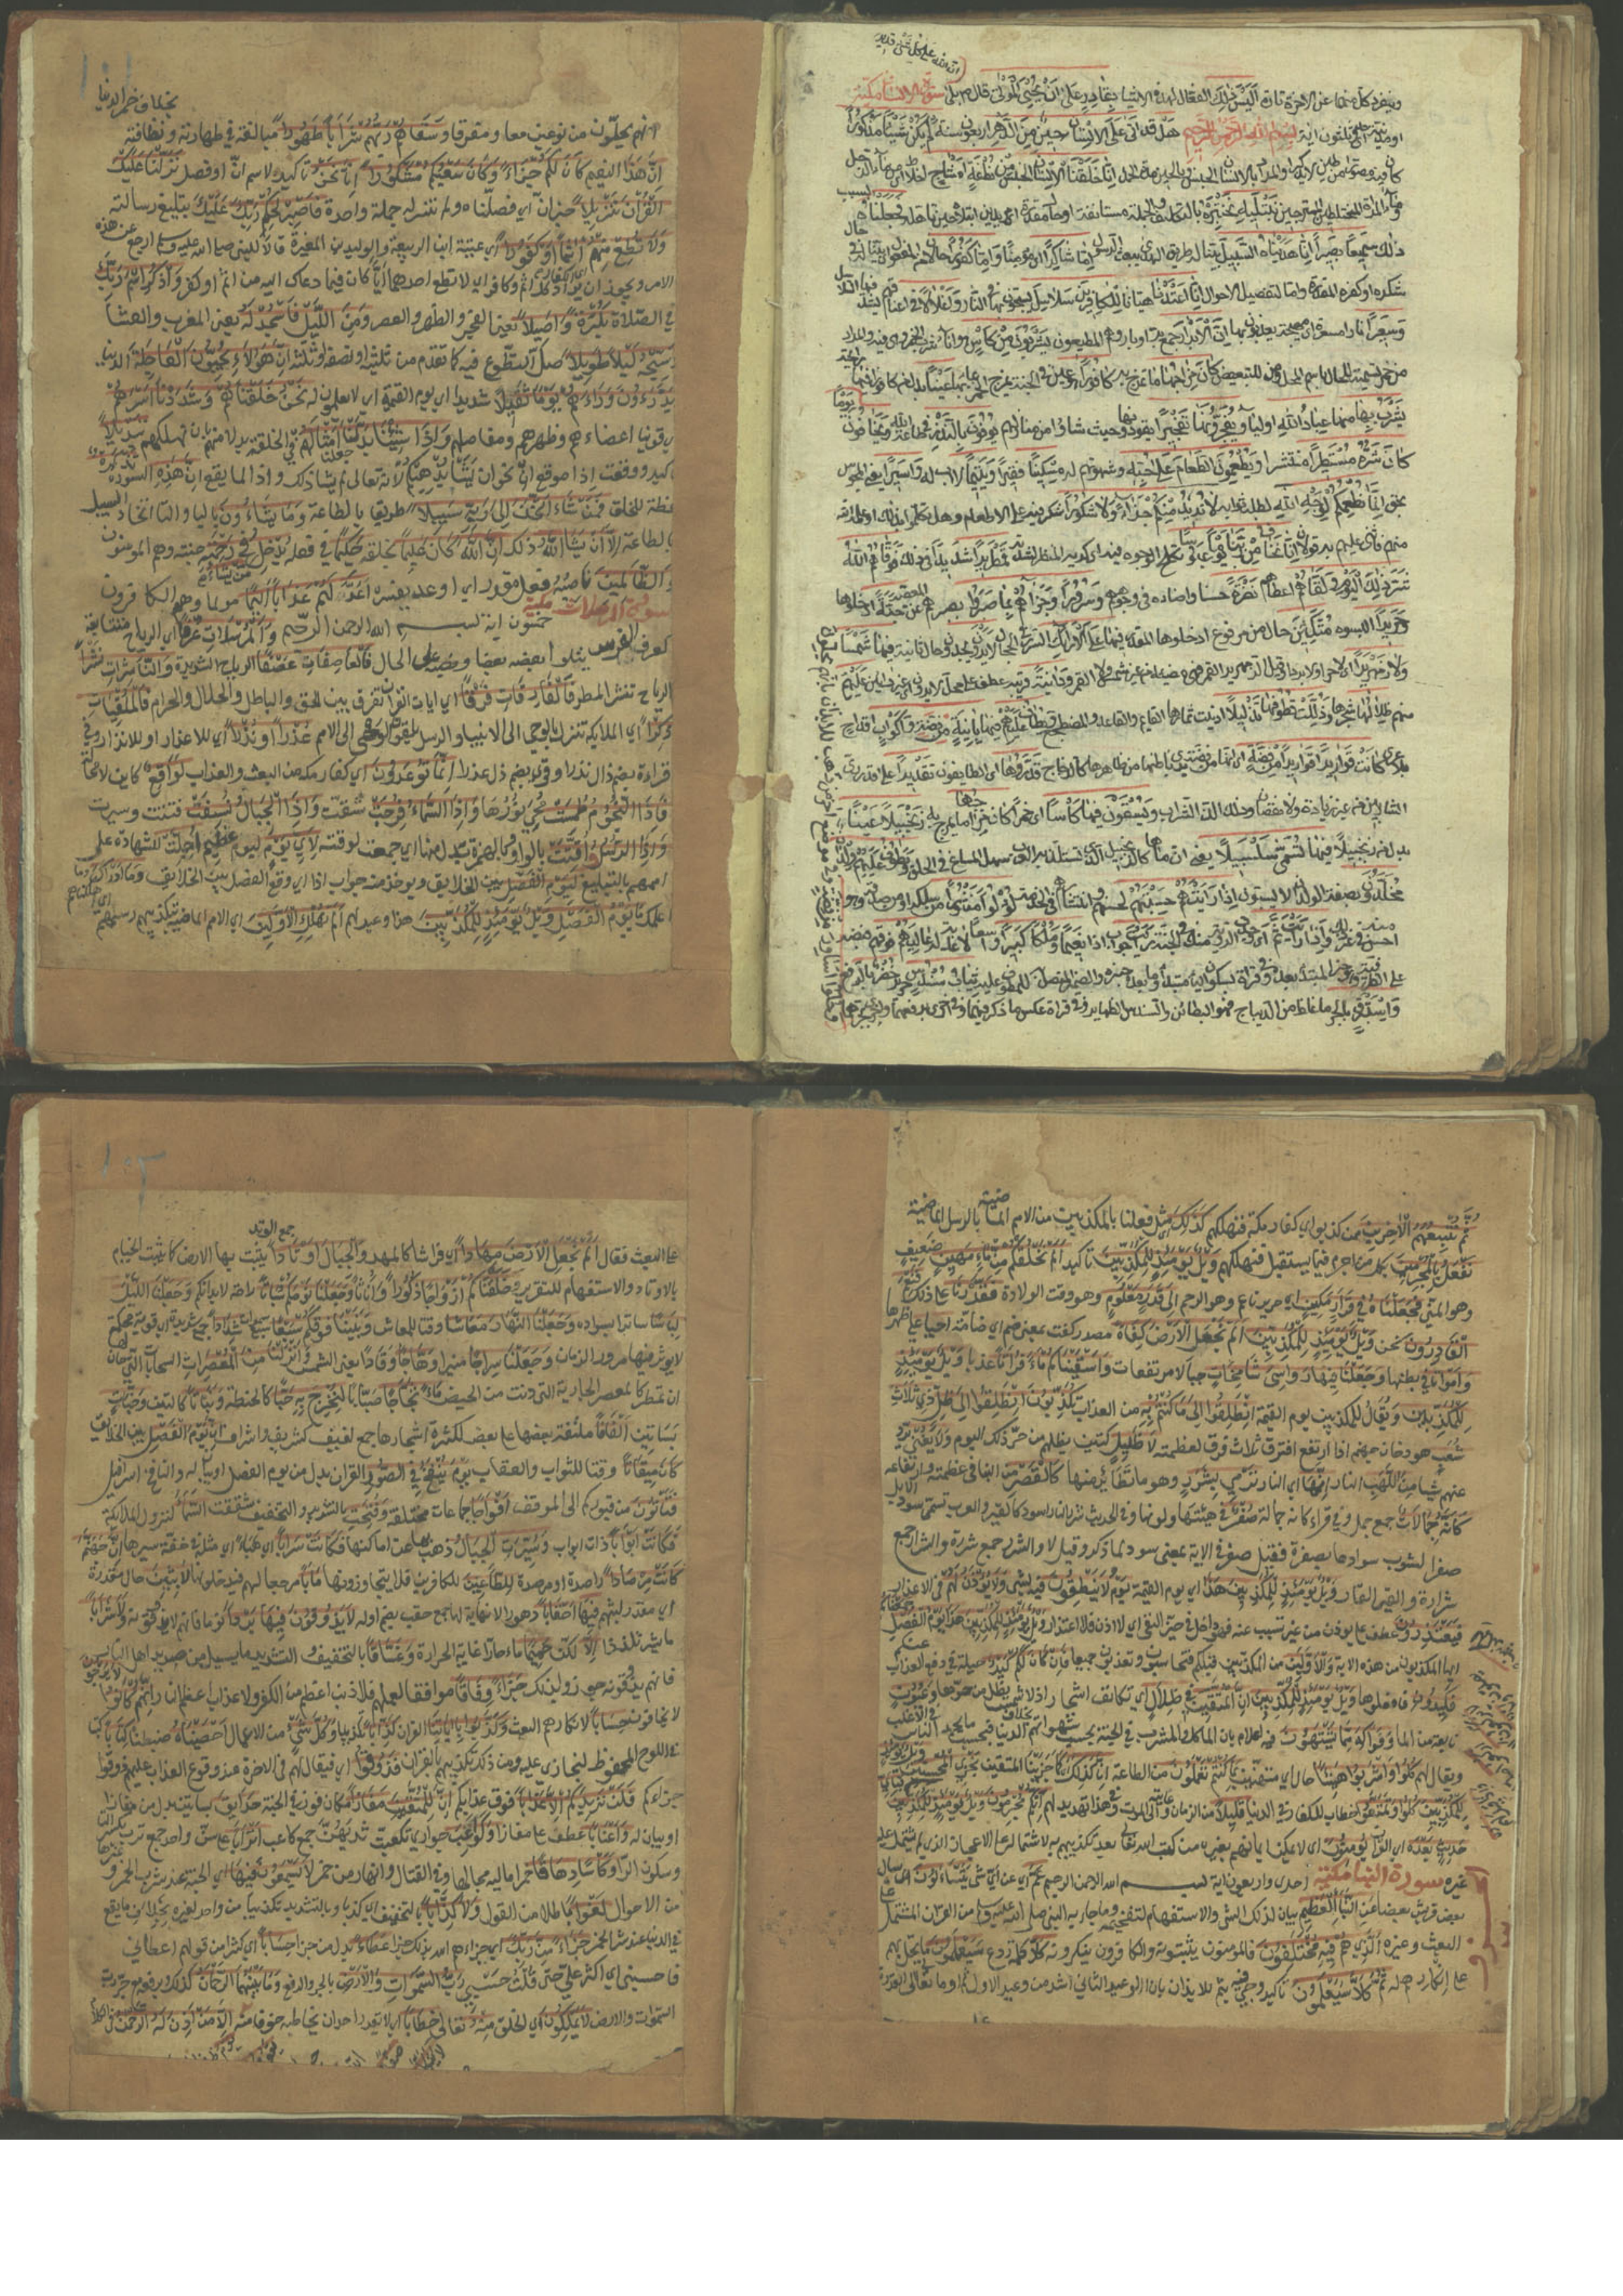 ان الله على كل شئ قدير
وينفرد كل منهما عن الاخر تارة اَلَيْسَ ذٰلِكَ الفعّال لهذه الاشيا بِقَادِرٍ عَلٰى اَنْ يُحْيِىَ الْمَوْتٰى قال صلى بلى سورة الانسان مكية
او مدنية احدى وثلثون اية بسم الله الرحمن الرحيم هَلْ قد اَتٰى عَلَى الْاِنْسَانِ حِيْنٌ مِنَ الدَّهْرِ اربعون سنة لَمْ يَكُنْ شَيْئًا مَذْكُوْرًا
كان فيه مصورا من طين لا يذكر او المراد بالانسان الجنس وبالحين مدة الحمل اِنَّا خَلَقْنَا الْاِنْسَانَ الجنس مِنْ نُطْفَةٍ اَمْشَاجٍ اخلاط من ماء الرجل
وماء المرأة المختلطين الممتزجين نَبْتَلِيْهِ نختبره بالتكليف والجملة مستانفة او حال مقدرة اى مريدين ابتلاءه حين تاهله فَجَعَلْنَاهُ بسبب
ذلك سَمِيْعًا بَصِيْرًا اِنَّا هَدَيْنَاهُ السَّبِيْلَ بينا له طريق الهدى ببعث الرسل اِمَّا شَاكِرًا اى مؤمنا وَاِمَّا كَفُوْرًا حالان من المفعول اى بينا له فى حال
شكره او كفره المقدرة واما لتفصيل الاحوال اِنَّا اَعْتَدْنَا هيانا لِلْكَافِرِيْنَ سَلَاسِلَ يسحبون بها فى النار وَاَغْلَالًا فى اعناقهم تشد فيها السلاسل
وَسَعِيْرًا نارا مسعرة اى مهيجة يعذبون بها اِنَّ الْاَبْرَارَ جمع بر او بار وهم المطيعون يَشْرَبُوْنَ مِنْ كَاْسٍ هو اناء شرب الخمر وهى فيه والمراد
من خمر تسمية للحال باسم المحل ومن للتبعيض كَانَ مِزَاجُهَا ما تمزج به كَافُوْرًا عَيْنًا بدل من كافورا فيها رائحته
يَشْرَبُ بِهَا منها عِبَادُ اللهِ اولياؤه يُفَجِّرُوْنَهَا تَفْجِيْرًا يقودونها حيث شاؤا من منازلهم يُوْفُوْنَ بِالنَّذْرِ فى طاعة الله وَيَخَافُوْنَ يَوْمًا
كَانَ شَرُّهُ مُسْتَطِيْرًا منتشرا وَيُطْعِمُوْنَ الطَّعَامَ عَلٰى حُبِّهِ وشهوتهم له مِسْكِيْنًا فقيرا وَيَتِيْمًا لا اب له وَاَسِيْرًا يعنى المحبوس
بحق اِنَّمَا نُطْعِمُكُمْ لِوَجْهِ اللهِ لطلب ثوابه لَا نُرِيْدُ مِنْكُمْ جَزَاءً وَلَا شُكُوْرًا شكرا فيه على الاطعام وهل تكلموا بذلك او علمه الله
منهم فاثنى عليهم به قولان اِنَّا نَخَافُ مِنْ رَبِّنَا يَوْمًا عَبُوْسًا تكلح الوجوه فيه اى كريه المنظر لشدته قَمْطَرِيْرًا شديدا فى ذلك فَوَقَاهُمُ اللهُ
شَرَّ ذٰلِكَ الْيَوْمِ وَلَقَّاهُمْ اعطاهم نَضْرَةً حسنا واضاءة فى وجوههم وَسُرُوْرًا وَجَزَاهُمْ بِمَا صَبَرُوْا بصبرهم عن المعصية جَنَّةً ادخلوها
وَحَرِيْرًا البسوه مُتَّكِئِيْنَ حال من مرفوع ادخلوها المقدر فِيْهَا عَلَى الْاَرَائِكِ السرر فى الحجال لَا يَرَوْنَ يجدون حال ثانية فِيْهَا شَمْسًا
وَلَا زَمْهَرِيْرًا لا حرا ولا بردا وقيل الزمهرير القمر فهى مضيئة من غير شمس ولا قمر وَدَانِيَةً قريبة عطف على محل لا يرون اى غير رائين عَلَيْهِمْ
منهم ظِلَالُهَا شجرها وَذُلِّلَتْ قُطُوْفُهَا تَذْلِيْلًا ادنيت ثمارها فينالها القائم والقاعد والمضطجع وَيُطَافُ عَلَيْهِمْ فيها بِاٰنِيَةٍ مِنْ فِضَّةٍ وَاَكْوَابٍ اقداح
بلا عرى كَانَتْ قَوَارِيْرَا قَوَارِيْرَ مِنْ فِضَّةٍ اى انها من فضة يرى باطنها من ظاهرها كالزجاج قَدَّرُوْهَا اى الطايفون تَقْدِيْرًا على قدر رى
الشاربين من غير زيادة ولا نقصان وذلك الذ الشراب وَيُسْقَوْنَ فِيْهَا كَاْسًا اى خمرا كَانَ مِزَاجُهَا ما يمزج به زَنْجَبِيْلًا عَيْنًا
بدل من زنجبيلا فِيْهَا تُسَمّٰى سَلْسَبِيْلًا يعنى ان ماءها كالزنجبيل الذى تستلذ به العرب سهل المساغ فى الحلق وَيَطُوْفُ عَلَيْهِمْ وِلْدَانٌ
مُخَلَّدُوْنَ بصفة الولدان لا يشيبون اِذَا رَاَيْتَهُمْ حَسِبْتَهُمْ لحسنهم وانتشارهم فى الخدمة لُؤْلُؤًا مَنْثُوْرًا من سلكه او من صدفه وهو
احسن منه فى غير ذلك وَاِذَا رَاَيْتَ ثَمَّ اى وجدت الرؤية منك فى الجنة رَاَيْتَ جواب اذا نَعِيْمًا وَمُلْكًا كَبِيْرًا واسعا لا غاية له عَالِيَهُمْ فوقهم فنصبه
على الظرفية وهو خبر المبتدأ بعده وفى قراءة بسكون الياء مبتدأ وما بعده خبره والضمير المتصل للمطوف عليهم ثِيَابُ سُنْدُسٍ حرير خُضْرٌ بالرفع
وَاِسْتَبْرَقٌ بالجر ما غلظ من الديباج فهو البطائن والسندس الظهاير وفى قراءة عكس ما ذكر فيهما وفى اخرى برفعهما واخرى بجرهما
بخلاف خمر الدنيا
انهم يحلّون من نوعين معا ومفرقا وَسَقَاهُمْ رَبُّهُمْ شَرَابًا طَهُوْرًا مبالغة فى طهارته ونظافته
اِنَّ هٰذَا النعيم كَانَ لَكُمْ جَزَاءً وَكَانَ سَعْيُكُمْ مَشْكُوْرًا اِنَّا نَحْنُ تاكيد لاسم انّ او فصل نَزَّلْنَا عَلَيْكَ
الْقُرْاٰنَ تَنْزِيْلًا خبر ان اى فصلناه ولم ننزله جملة واحدة فَاصْبِرْ لِحُكْمِ رَبِّكَ عَلَيْكَ بتبليغ رسالته
وَلَا تُطِعْ مِنْهُمْ اى الكفار اٰثِمًا اَوْ كَفُوْرًا اى عتبة ابن الربيعة والوليد بن المغيرة قالا للنبى صلى الله عليه وسلم ارجع عن هذه
الامر ويجوز ان يراد كل اثم وكافر اى لا تطع احدهما ايا كان فيما دعاك اليه من اثم او كفر وَاذْكُرِ اسْمَ رَبِّكَ
فى الصلاة بُكْرَةً وَاَصِيْلًا يعنى الفجر والظهر والعصر وَمِنَ اللَّيْلِ فَاسْجُدْ لَهُ يعنى المغرب والعشا
وَسَبِّحْهُ لَيْلًا طَوِيْلًا صل التطوع فيه كما تقدم من ثلثيه او نصفه او ثلثه اِنَّ هٰؤُلَاءِ يُحِبُّوْنَ الْعَاجِلَةَ الدنيا
وَيَذَرُوْنَ وَرَاءَهُمْ يَوْمًا ثَقِيْلًا شديدا اى يوم القيمة اى لا يعملون له نَحْنُ خَلَقْنَاهُمْ وَشَدَدْنَا اَسْرَهُمْ
قوينا اعضاءهم وظهرهم ومفاصلهم وَاِذَا شِئْنَا بَدَّلْنَا جعلنا اَمْثَالَهُمْ فى الخلقة بدلا منهم بان نهلكهم تَبْدِيْلًا
تاكيد ووقعت اذا موقع ان نحو ان يشا يذهبكم لانه تعالى لم يشا ذلك واذا لما يقع اِنَّ هٰذِهِ السورة تَذْكِرَةٌ
عظة للخلق فَمَنْ شَاءَ اتَّخَذَ اِلٰى رَبِّهِ سَبِيْلًا طريقا بالطاعة وَمَا يَشَاءُوْنَ باليا والتا اتخاذ السبيل
بالطاعة اِلَّا اَنْ يَشَاءَ اللهُ ذلك اِنَّ اللهَ كَانَ عَلِيْمًا بخلقه حَكِيْمًا فى فعله يُدْخِلُ مَنْ يَشَاءُ فِى رَحْمَتِهِ جنته وهم المومنون
وَالظَّالِمِيْنَ ناصبه فعل مقدر اى اوعد يفسره اَعَدَّ لَهُمْ عَذَابًا اَلِيْمًا مولما وهم الكافرون
سورة المرسلات مكية خمسون اية بسم الله الرحمن الرحيم وَالْمُرْسَلَاتِ عُرْفًا اى الرياح متتابعة
كعرف الفرس يتلوا بعضه بعضا ونصبه على الحال فَالْعَاصِفَاتِ عَصْفًا الرياح الشديدة وَالنَّاشِرَاتِ نَشْرًا
الرياح تنشر المطر فَالْفَارِقَاتِ فَرْقًا اى ايات القران تفرق بين الحق والباطل والحلال والحرام فَالْمُلْقِيَاتِ
ذِكْرًا اى الملايكة تنزل بالوحى الى الانبيا والرسل يلقون الوحى الى الامم عُذْرًا اَوْ نُذْرًا اى للاعذار او للانذار وفى
قراءة بضم ذال نذرا وقرى بضم ذال عذرا اِنَّمَا تُوْعَدُوْنَ اى كفار مكة من البعث والعذاب لَوَاقِعٌ كاين لا محالة
فَاِذَا النُّجُوْمُ طُمِسَتْ محى نورها وَاِذَا السَّمَاءُ فُرِجَتْ شقت وَاِذَا الْجِبَالُ نُسِفَتْ فتتت وسيرت
وَاِذَا الرُّسُلُ اُقِّتَتْ بالواو وبالهمزة بدل منها اى جمعت لوقت لِاَىِّ يَوْمٍ ليوم عظيم اُجِّلَتْ للشهادة على
اممهم بالتبليغ لِيَوْمِ الْفَصْلِ بين الخلايق ويوخذ منه جواب اذا اى وقع الفصل بين الخلايق وَمَا اَدْرَاكَ
اعلمك مَا يَوْمُ الْفَصْلِ وَيْلٌ يَوْمَئِذٍ لِلْمُكَذِّبِيْنَ هذا وعيد لهم اَلَمْ نُهْلِكِ الْاَوَّلِيْنَ اى الامم الماضية بتكذيبهم رسلهم
ثُمَّ نُتْبِعُهُمُ الْاٰخِرِيْنَ ممن كذبوا اى كفار مكة فنهلكهم كَذٰلِكَ مثل فعلنا بالمكذبين من الامم الماضية بالرسل الماضية
نَفْعَلُ بِالْمُجْرِمِيْنَ بكل من اجرم فيما يستقبل فنهلكهم وَيْلٌ يَوْمَئِذٍ لِلْمُكَذِّبِيْنَ تاكيد اَلَمْ نَخْلُقْكُمْ مِنْ مَاءٍ مَهِيْنٍ ضعيف
وهو المنى فَجَعَلْنَاهُ فِى قَرَارٍ مَكِيْنٍ اى حريز تام وهو الرحم اِلٰى قَدَرٍ مَعْلُوْمٍ وهو وقت الولادة فَقَدَرْنَا على ذلك فَنِعْمَ
الْقَادِرُوْنَ نحن وَيْلٌ يَوْمَئِذٍ لِلْمُكَذِّبِيْنَ اَلَمْ نَجْعَلِ الْاَرْضَ كِفَاتًا مصدر كفت بمعنى ضم اى ضامة احياء على ظهرها
وَاَمْوَاتًا فى بطنها وَجَعَلْنَا فِيْهَا رَوَاسِىَ شَامِخَاتٍ جبالا مرتفعات وَاَسْقَيْنَاكُمْ مَاءً فُرَاتًا عذبا وَيْلٌ يَوْمَئِذٍ
لِلْمُكَذِّبِيْنَ ويقال للمكذبين يوم القيمة اِنْطَلِقُوْا اِلٰى مَا كُنْتُمْ بِهِ من العذاب تُكَذِّبُوْنَ اِنْطَلِقُوْا اِلٰى ظِلٍّ ذِى ثَلَاثِ
شُعَبٍ هو دخان جهنم اذا ارتفع افترق ثلاث فرق لعظمته لَا ظَلِيْلٍ كنين يظلهم من حر ذلك اليوم وَلَا يُغْنِى يرد
عنهم شيا مِنَ اللَّهَبِ النار اِنَّهَا اى النار تَرْمِى بِشَرَرٍ وهو ما تطاير منها كَالْقَصْرِ من البنا فى عظمته وارتفاعه
كَاَنَّهُ جِمَالَاتٌ جمع جمل وفى قراءة جمالة صُفْرٌ فى هيئتها ولونها وفى الحديث شرار النار اسود كالقير والعرب تسمى سود الابل
صفرا لشوب سوادها بصفرة فقيل صفر فى الاية بمعنى سود لما ذكر وقيل لا والشرر جمع شررة والشرار جمع
شرارة والقير القار وَيْلٌ يَوْمَئِذٍ لِلْمُكَذِّبِيْنَ هٰذَا اى يوم القيمة يَوْمُ لَا يَنْطِقُوْنَ فيه بشى وَلَا يُؤْذَنُ لَهُمْ فى الاعذار
فَيَعْتَذِرُوْنَ عطف على يوذن من غير تسبب عنه فهو داخل فى حيز النفى اى لا اذن فلا اعتذار وَيْلٌ يَوْمَئِذٍ لِلْمُكَذِّبِيْنَ هٰذَا يَوْمُ الْفَصْلِ
ايها المكذبون من هذه الامة وَالْاَوَّلِيْنَ من المكذبين قبلكم فتحاسبون وتعذبون جميعا فَاِنْ كَانَ لَكُمْ كَيْدٌ حيلة فى دفع العذاب
فَكِيْدُوْنِ فافعلوها وَيْلٌ يَوْمَئِذٍ لِلْمُكَذِّبِيْنَ اِنَّ الْمُتَّقِيْنَ فِى ظِلَالٍ اى تكاثف اشجار اذ لا شمس يظل من حرها وَعُيُوْنٍ
نابعة من الما وَفَوَاكِهَ مِمَّا يَشْتَهُوْنَ فيه اعلام بان الماكل والمشرب فى الجنة بحسب شهواتهم بخلاف الدنيا فبحسب ما يجد الناس فى الاغلب
ويقال لهم كُلُوْا وَاشْرَبُوْا هَنِيْئًا حال اى متهنين بِمَا كُنْتُمْ تَعْمَلُوْنَ من الطاعة اِنَّا كَذٰلِكَ كما جزينا المتقين نَجْزِى الْمُحْسِنِيْنَ
لِلْمُكَذِّبِيْنَ كُلُوْا وَتَمَتَّعُوْا خطاب للكفار فى الدنيا قَلِيْلًا من الزمان وغايته الى الموت وفى هذا تهديد لهم اِنَّكُمْ مُجْرِمُوْنَ وَيْلٌ يَوْمَئِذٍ لِلْمُكَذِّبِيْنَ
حَدِيْثٍ بَعْدَهُ اى القران يُؤْمِنُوْنَ اى لا يمكن ايمانهم بغيره من كتب الله تعالى بعد تكذيبهم به لاشتماله على الاعجاز الذى لم يشتمل عليه
غيره سورة النبا مكية احدى واربعون اية بسم الله الرحمن الرحيم عَمَّ اى عن اى شى يَتَسَاءَلُوْنَ يسال
بعض قريش بعضا عَنِ النَّبَاِ الْعَظِيْمِ بيان لذلك الشى والاستفهام لتفخيمه وهو ما جا به النبى صلى الله عليه وسلم من القران المشتمل على
البعث وغيره الَّذِى هُمْ فِيْهِ مُخْتَلِفُوْنَ فالمومنون يثبتونه والكافرون ينكرونه كَلَّا كلمة ردع سَيَعْلَمُوْنَ ما يحل بهم
على انكارهم له ثُمَّ كَلَّا سَيَعْلَمُوْنَ تاكيد وجى فيه بثم للايذان بان الوعيد الثانى اشد من وعيد الاول ثم اوما تعالى الى القدرة
على البعث فقال اَلَمْ نَجْعَلِ الْاَرْضَ مِهَادًا اى فراشا كالمهد وَالْجِبَالَ اَوْتَادًا جمع الوتد يثبت بها الارض كما يثبت الخيام
بالاوتاد والاستفهام للتقرير وَخَلَقْنَاكُمْ اَزْوَاجًا ذكورا واناثا وَجَعَلْنَا نَوْمَكُمْ سُبَاتًا راحة لابدانكم وَجَعَلْنَا اللَّيْلَ
لِبَاسًا ساترا بسواده وَجَعَلْنَا النَّهَارَ مَعَاشًا وقتا للمعاش وَبَنَيْنَا فَوْقَكُمْ سَبْعًا سبع سموات شِدَادًا جمع شديدة اى قوية محكمة
لا يوثر فيها مرور الزمان وَجَعَلْنَا سِرَاجًا منيرا وَهَّاجًا وقادا يعنى الشمس وَاَنْزَلْنَا مِنَ الْمُعْصِرَاتِ السحابات التى حان لها
ان تمطر كالمعصر الجارية التى دنت من الحيض مَاءً ثَجَّاجًا صبابا لِنُخْرِجَ بِهِ حَبًّا كالحنطة وَنَبَاتًا كالتين وَجَنَّاتٍ
بساتين اَلْفَافًا ملتفة بعضها على بعض لكثرة اشجارها جمع لفيف كشريف واشراف اِنَّ يَوْمَ الْفَصْلِ بين الخلايق
كَانَ مِيْقَاتًا وقتا للثواب والعقاب يَوْمَ يُنْفَخُ فِى الصُّوْرِ القرن بدل من يوم الفصل او بيان له والنافخ اسرافيل
فَتَاْتُوْنَ من قبوركم الى الموقف اَفْوَاجًا جماعات مختلفة وَفُتِحَتِ بالتشديد والتخفيف شققت السَّمَاءُ لنزول الملايكة
فَكَانَتْ اَبْوَابًا ذات ابواب وَسُيِّرَتِ الْجِبَالُ ذهب بها عن اماكنها فَكَانَتْ سَرَابًا اى هباء اى مثله فى خفة سيرها اِنَّ جَهَنَّمَ
كَانَتْ مِرْصَادًا راصدة او مرصدة لِلطَّاغِيْنَ للكافرين فلا يتجاوزونها مَاٰبًا مرجعا لهم فيدخلونها لَابِثِيْنَ حال مقدرة
اى مقدر لبثهم فِيْهَا اَحْقَابًا دهورا لا نهاية لها جمع حقب بضم اوله لَا يَذُوْقُوْنَ فِيْهَا بَرْدًا نوما فانهم لا يذوقونه وَلَا شَرَابًا
ما يشرب تلذذا اِلَّا لكن حَمِيْمًا ماء حارا غاية الحرارة وَغَسَّاقًا بالتخفيف والتشديد ما يسيل من صديد اهل النار
فانهم يذوقونه جوزوا بذلك جَزَاءً وِفَاقًا موافقا لعملهم فلا ذنب اعظم من الكفر ولا عذاب اعظم من النار اِنَّهُمْ كَانُوْا لَا يَرْجُوْنَ
لا يخافون حِسَابًا لانكارهم البعث وَكَذَّبُوْا بِاٰيَاتِنَا القران كِذَّابًا تكذيبا وَكُلَّ شَىْءٍ من الاعمال اَحْصَيْنَاهُ ضبطناه كِتَابًا كتبا
فى اللوح المحفوظ لنجازى عليه ومن ذلك تكذيبهم بالقران فَذُوْقُوْا اى فيقال لهم فى الاخرة عند وقوع العذاب عليهم ذوقوا
جزاءكم فَلَنْ نَزِيْدَكُمْ اِلَّا عَذَابًا فوق عذابكم اِنَّ لِلْمُتَّقِيْنَ مَفَازًا مكان فوز فى الجنة حَدَائِقَ بساتين بدل من مفازا
او بيان له وَاَعْنَابًا عطف على مفازا وَكَوَاعِبَ جوارى تكعبت ثديهن جمع كاعب اَتْرَابًا على سن واحد جمع ترب بكسر التا
وسكون الرا وَكَاْسًا دِهَاقًا خمرا مالية محالها وفى القتال وانهار من خمر لَا يَسْمَعُوْنَ فِيْهَا اى الجنة عند شرب الخمر وغيرها
من الاحوال لَغْوًا باطلا من القول وَلَا كِذَّابًا بالتخفيف اى كذبا وبالتشديد تكذيبا من واحد لغيره بخلاف ما يقع
فى الدنيا عند شرب الخمر جَزَاءً مِنْ رَبِّكَ اى جزاهم الله بذلك جزاء عَطَاءً بدل من جزا حِسَابًا اى كثيرا من قولهم اعطانى
فاحسبنى اى اكثر على حتى قلت حسبى رَبِّ السَّمٰوَاتِ وَالْاَرْضِ بالجر والرفع وَمَا بَيْنَهُمَا الرَّحْمٰنِ كذلك وبرفعه مع جر رب
السموات والارض لَا يَمْلِكُوْنَ اى الخلق مِنْهُ تعالى خِطَابًا اى لا يقدر احد ان يخاطبه خوفا منه